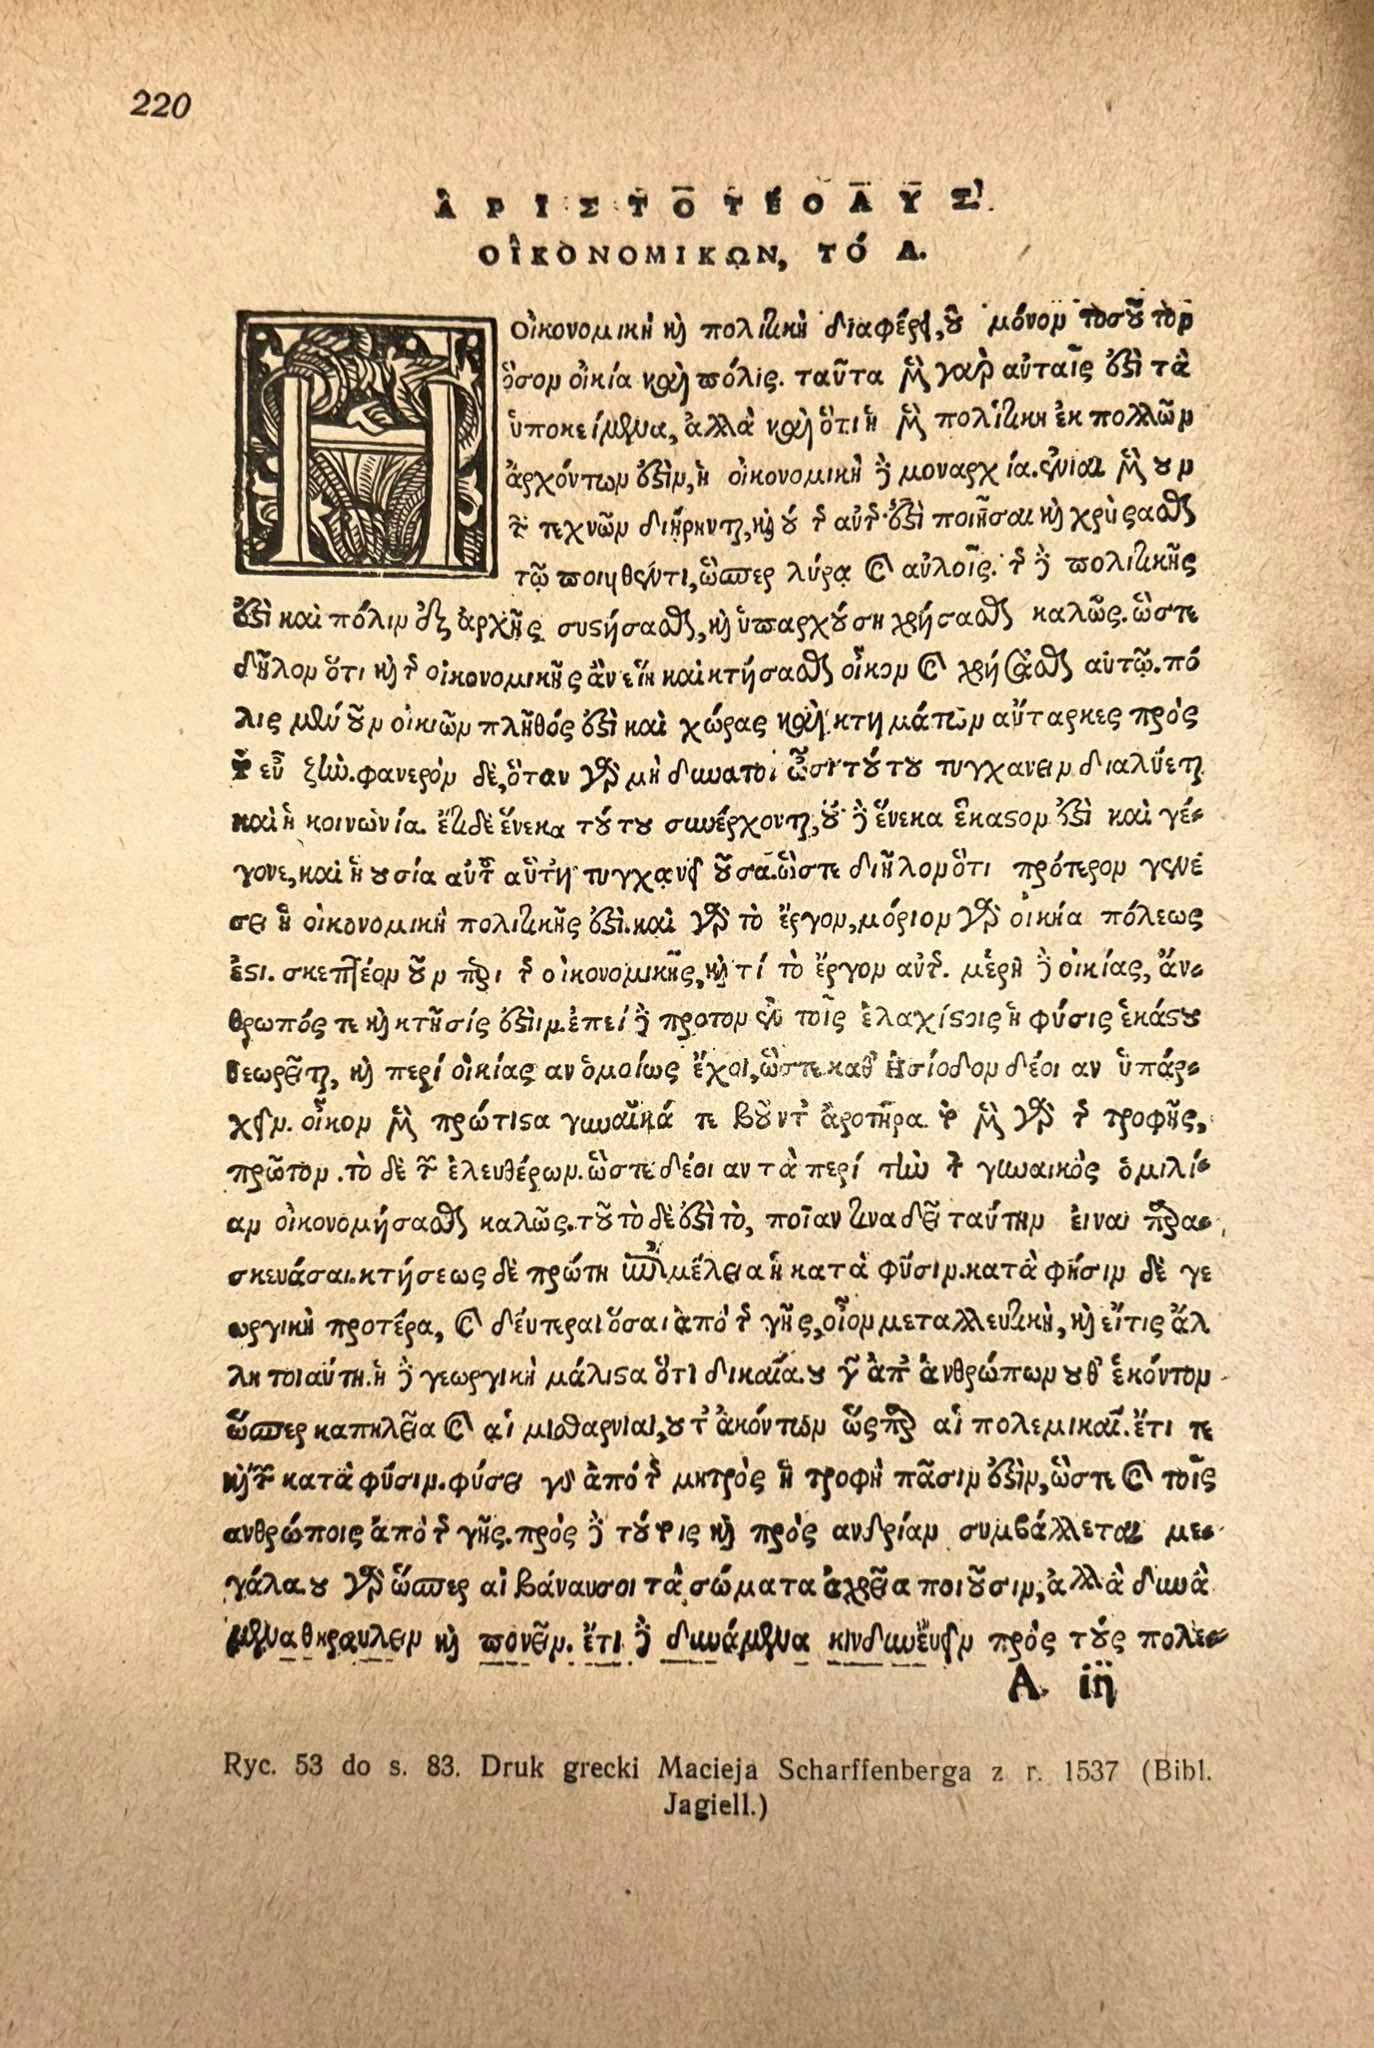 220
ἈΡΙΣΤΟΤΈΟΛΥΣ
ΟἸΚΟΝΟΜΙΚΩΝ, ΤΌ Α.
Η οἰκονομικὴ καὶ πολιτικὴ διαφέρει, οὐ μόνον τοσοῦτον
ὅσον οἰκία καὶ πόλις. ταῦτα μὲν γὰρ αὐταῖς ἐστὶ τὰ
ὑποκείμενα, ἀλλὰ καὶ ὅτι ἡ μὲν πολιτικη ἐκ πολλῶν
ἀρχόντων ἐστὶν, ἡ οἰκονομικὴ δὲ μοναρχία. ἔνιαι μὲν ουν
τῶν τεχνῶν διῄρηνται, καὶ οὐ τῆς αὐτῆς ἐστὶ ποιῆσαι καὶ χρήσασθαι
τῷ ποιηθέντι, ὥσπερ λύρᾳ καὶ αὐλοῖς. τῆς δὲ πολιτικῆς
ἐστὶ καὶ πόλιν ἐξ ἀρχῆς συστήσασθαι, καὶ ὑπαρχούσῃ χρήσασθαι καλῶς. ὥστε
δῆλον ὅτι καὶ τῆς οἰκονομικῆς ἂν εἴη καὶ κτήσασθαι οἶκον καὶ χρήσασθαι αὐτῷ. πό
λις μὲν οὖν οἰκιῶν πλῆθός ἐστὶ καὶ χώρας καὶ κτημάτων αὔταρκες πρὸς
τὸ εὖ ζῆν. φανερὸν δὲ, ὅταν γὰρ μὴ δυνατοὶ ὦσι τούτου τυγχανειν διαλύεται
καὶ ἡ κοινωνία. ἔτι δὲ ἕνεκα τούτου συνέρχονται, οὗ δὲ ἕνεκα ἕκαστον ἐστὶ καὶ γέ-
γονε, καὶ ἡ οὐσία αὐτῆς αὕτη τυγχάνει οὖσα. ὥστε δῆλον ὅτι πρότερον γενέ
σει ἡ οἰκονομικὴ πολιτικῆς ἐστὶ. καὶ γὰρ τὸ ἔργον, μόριον γὰρ οἰκία πόλεως
ἐστι. σκεπτέον οὖν περὶ τῆς οἰκονομικῆς, καὶ τί τὸ ἔργον αὐτῆς. μέρη δὲ οἰκίας, ἄν-
θρωπός τε καὶ κτῆσίς ἐστιν. ἐπεὶ δὲ πρωτον ἐν τοῖς ἐλαχίστοις ἡ φύσις ἑκάστου
θεωρεῖται, καὶ περί οἰκίας αν ὁμοίως ἔχοι, ὥστε καθ' Ἡσίοδον δέοι αν ὑπάρ-
χειν. οἶκον μὲν πρώτιστα γυναῖκά τε βοῦν τ' ἀροτῆρα. τὸ μὲν γὰρ τῆς τροφῆς,
πρῶτον. τὸ δὲ τῶν ἐλευθέρων. ὥστε δέοι αν τὰ περί τὴν τῆς γυναικὸς ὁμιλί-
αν οἰκονομήσασθαι καλῶς. τοῦτο δὲ ἐστὶ τὸ, ποῖαν τινα δεῖ ταύτην ειναι παρα-
σκευάσαι. κτήσεως δὲ πρώτη ἐπιμέλεια ἡ κατὰ φύσιν. κατὰ φήσιν δὲ γε
ωργικὴ προτέρα, καὶ δεύτεραι ὅσαι ἀπὸ τῆς γῆς, οἷον μεταλλευτικὴ, καὶ εἴτις ἄλ
λη τοιαύτη. ἡ δὲ γεωργικὴ μάλιστα ὅτι δικαία. οὐ γὰρ ἀπ' ἀνθρώπων ουθ' ἑκόντον
ὥσπερ καπηλεῖα καὶ αἱ μισθαρνίαι, οὐτ' ἀκόντων ὥσπερ αἱ πολεμικαῖ. ἔτι τε
καὶ τῶν κατὰ φύσιν. φύσει γὰρ ἀπό τῆς μητρὸς ἡ τροφὴ πᾶσιν ἐστὶν, ὥστε καὶ τοῖς
ανθρώποις ἀπὸ τῆς γῆς. πρὸς δὲ τούτοις καὶ πρὸς ανδρίαν συμβάλλεται με-
γάλα. ου γὰρ ὥσπερ αἱ βάναυσοι τὰ σώματα ἀχρεῖα ποιοῦσιν, ἀλλὰ δυνὰ
μενα θηραυλειν καὶ πονεῖν. ἔτι δὲ δυνάμενα κινδυνεύειν πρός τούς πολε-
A iij
Ryc. 53 do s. 83. Druk grecki Macieja Scharffenberga z r. 1537 (Bibl.
Jagiell.)